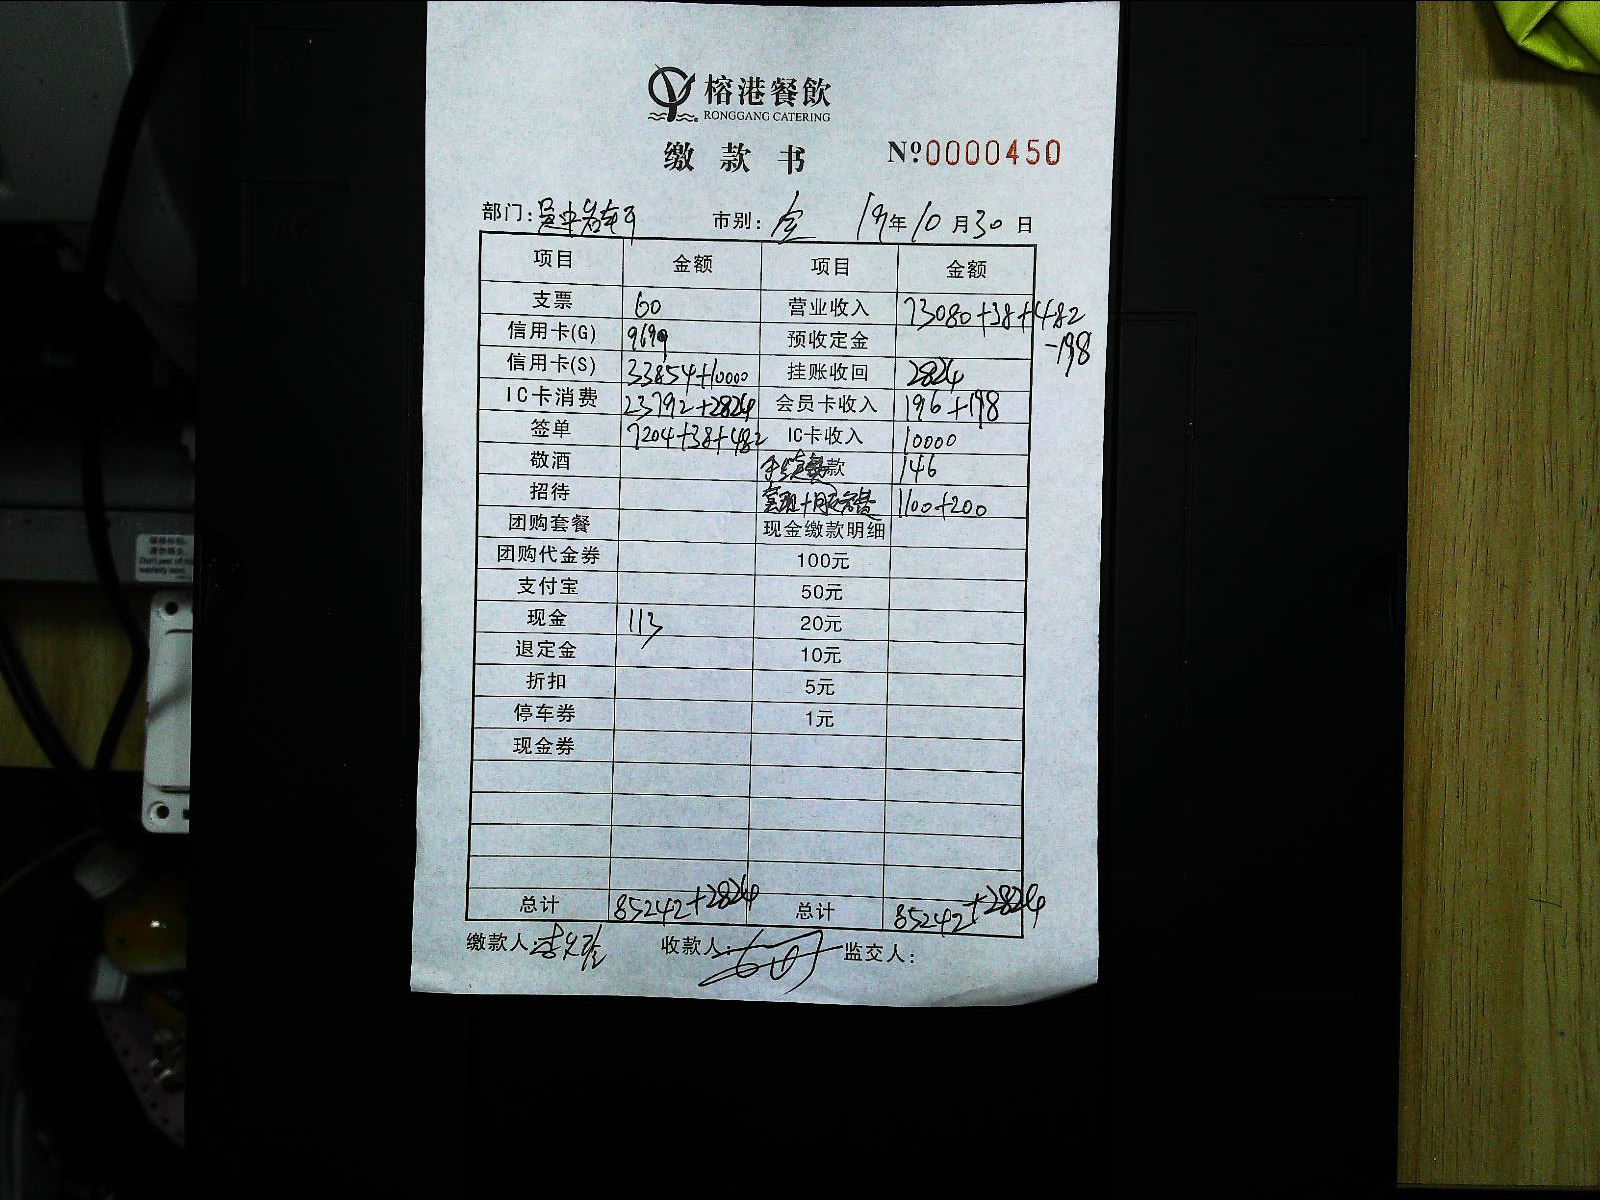 榕港餐飲
RONGGANG CATERING
缴款书 №0000450
部门: 市别: 全 19年10月30日
项目 金额 项目 金额
支票 60 营业收入 73080+38+482
-198
信用卡(G) 9699 预收定金
信用卡(S) 33854+10000 挂账收回 2824
IC卡消费 23792+2824 会员卡收入 196+198
签单 7204+38+482 IC卡收入 10000
敬酒 款 146
招待 1100+200
团购套餐 现金缴款明细
团购代金券 100元
支付宝 50元
现金 113 20元
退定金 10元
折扣 5元
停车券 1元
现金券
总计 85242+2824 总计 85242+2824
缴款人: 收款人: 监交人: